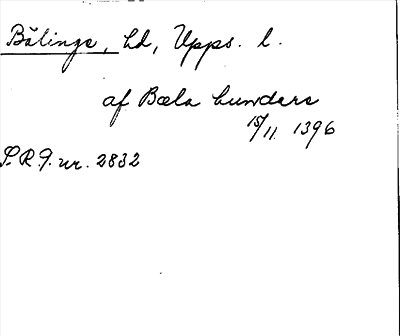 Bälinge, hd, Upps. l.
af Bæla hundare
15/11 1396
S.R.P. nr. 2832